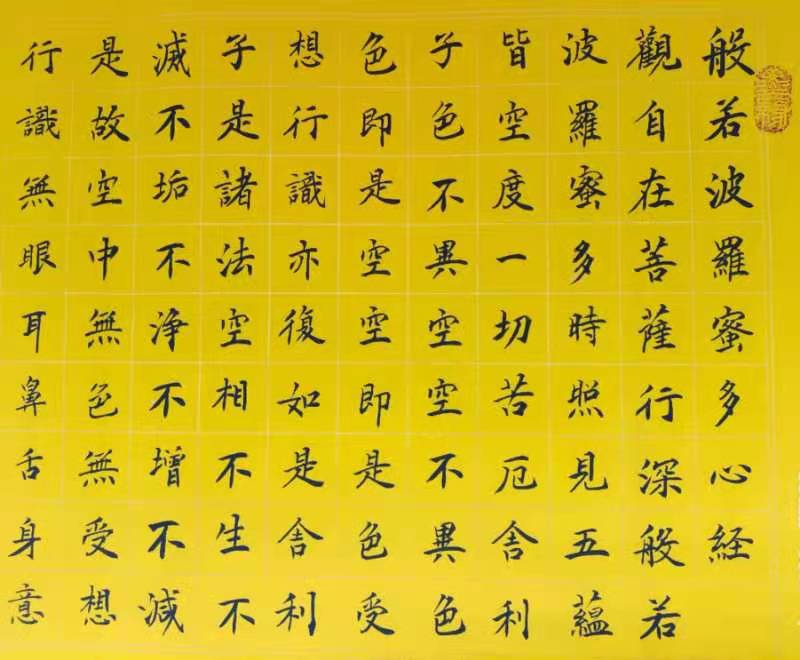 般若波羅蜜多心経
觀自在菩薩行深般若
波羅蜜多時照見五蘊
皆空度一切苦厄舍利
子色不異空空不異色
色即是空空即是色受
想行識亦復如是舍利
子是諸法空相不生不
滅不垢不浄不增不減
是故空中無色無受想
行識無眼耳鼻舌身意